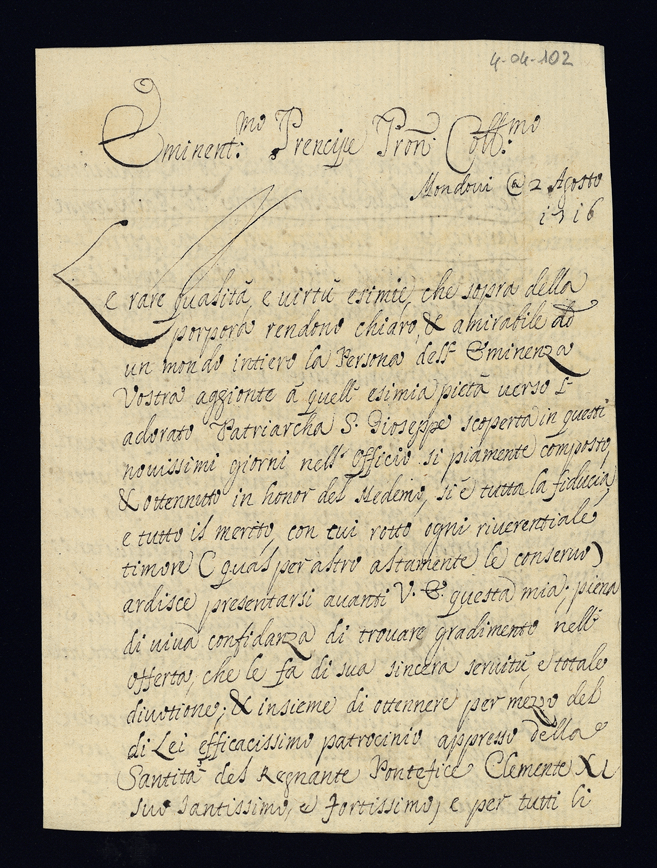 4-04-102
Eminent:mo Prencipe Pron Coll:mo
Mondoui @ 2 Agosto
1716
Le rare qualità, e uirtù esimie, che sopra della
porpora rendono chiaro, & amirabile ad
un mondo intiero la Persona dell' Eminenza
Vostra aggionte à quell' esimia pietà uerso l'
adorato Patriarcha S. Gioseppe scoperta in questi
nouissimi giorni nell' Officio si piamente composto,
& ottennuto in honor del Medemo, si è tutta la fiducia,
e tutto il merito, con cui rotto ogni riuerentiale
timore (qual per altro altamente le conseruo)
ardisce presentarsi auanti V. E. questa mia; piena
di uiua confidanza di trouare gradimento nell'
offerta, che le fà di sua sincera seruitù, e totale
diuotione; & insieme di ottennere per mezzo del
di Lei efficacissimo patrocinio appresso della
Santità del Regnante Pontefice Clemente XI
suo santissimo, e fortissimo, e per tutti li